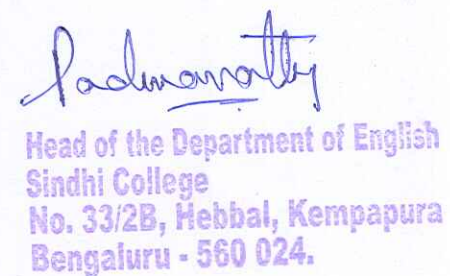 Padmavathy
Head of the Department of English
Sindhi College
No. 33/2B, Hebbal, Kempapura
Bengaluru - 560 024.